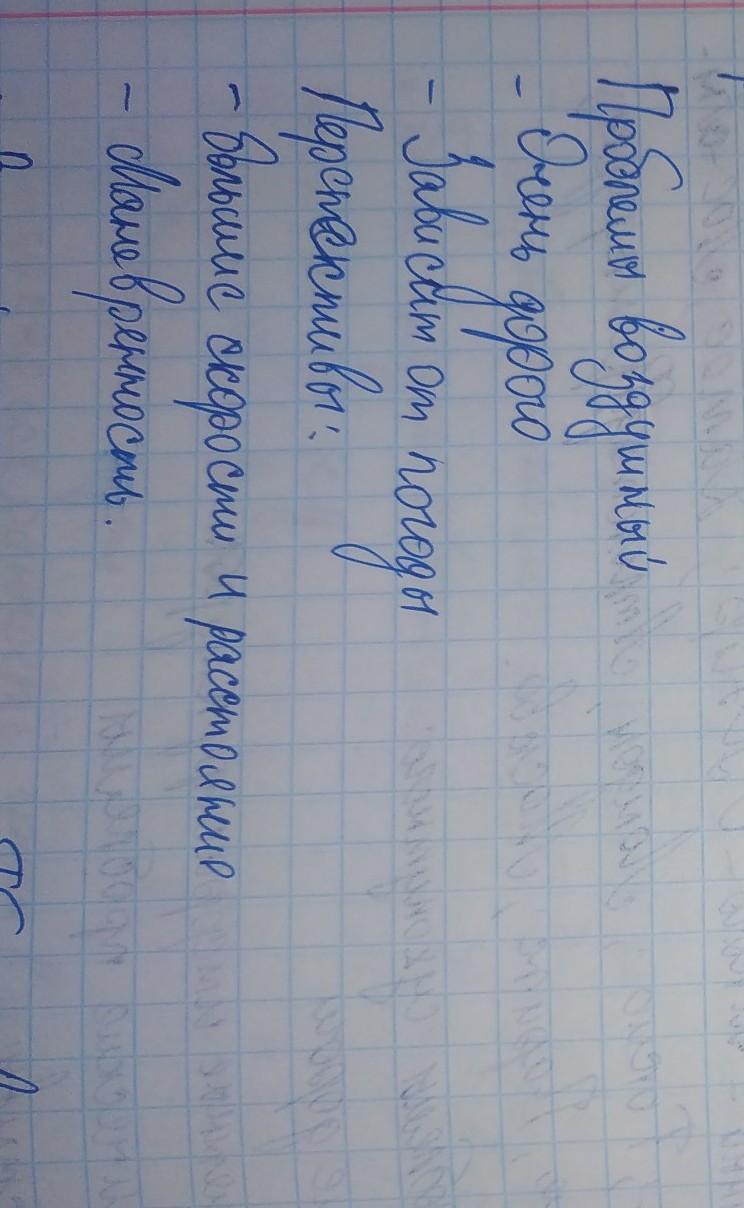 Проблемы воздушный
- Очень дорого
- Зависит от погоды
Перспективы:
- Большие скорости и расстояние
- Маневренность.